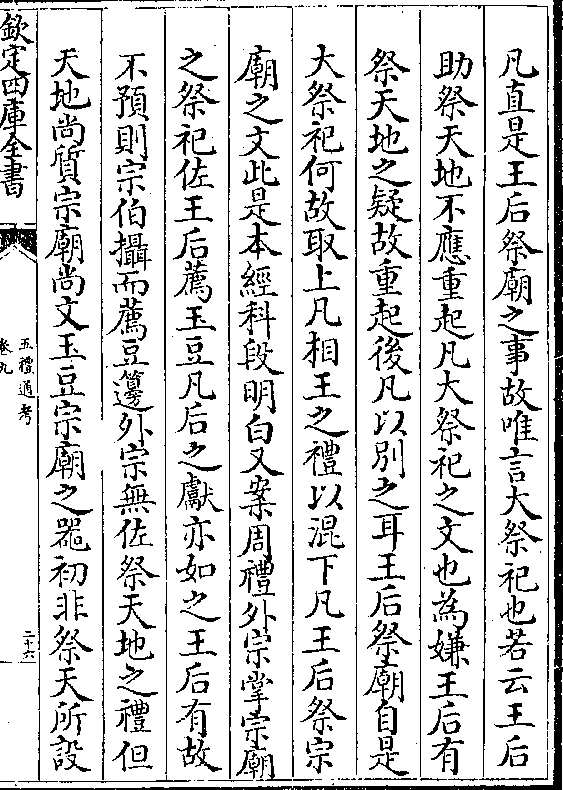 凡直是王后祭廟之事故唯言大祭祀也若云王后
助祭天地不應重起凡大祭祀之文也為嫌王后有
祭天地之疑故重起後凡以別之耳王后祭廟自是
大祭祀何故取上凡相王之禮以混下凡王后祭宗
廟之文此是本經科段明白又案周禮外宗掌宗廟
之祭祀佐王后薦玉豆凡后之獻亦如之王后有故
不預則宗伯攝而薦豆籩外宗無佐祭天地之禮但
天地尚質宗廟尚文玉豆宗廟之器初非祭天所設
欽定四庫全書
五禮通考
卷九
二十六